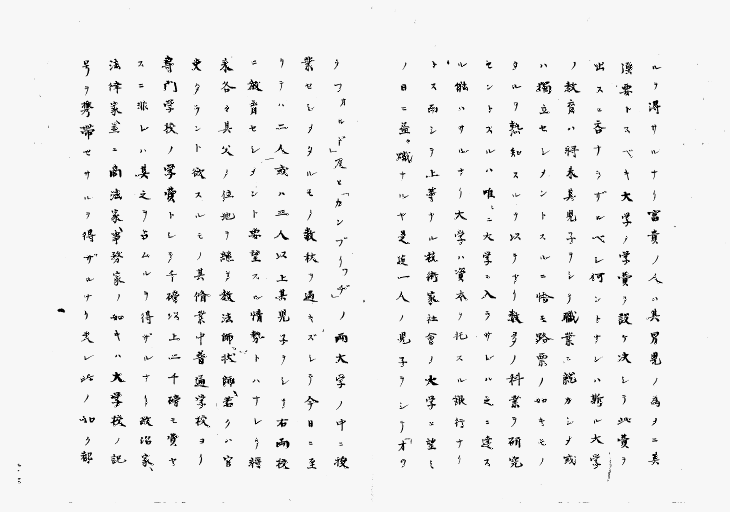 ルヲ得サルナリ富貴ノ人ハ其男児ノ為メニ其
須要トスベキ大学ノ学費ヲ設ケ決シテ此費ヲ
出スニ吝ナラザルベシ何ントナレハ斯ル大学
ノ教育ハ将来其児子ヲシテ職業ニ就カシメ或
ハ独立セシメントスルニ恰モ路票ノ如キモノ
タルヲ熟知スルヲ以テナリ数多ノ科業ヲ研究
セントスルハ唯ニ大学ニ入ラサレハ之ニ達ス
ル能ハサルナリ大学ハ資本ヲ托スル銀行ナリ
トス而シテ上等ナル技術家社会ノ大学ニ望ミ
ノ日ニ益熾ナルヤ是近一人ノ児子ヲシテ「オク
ヲフカルド」及ヒ「カンブリッヂ」ノ両大学ノ中ニ授
業セシメタルモノ数状ヲ過キズシテ今日ニ至
リテハ二人或ハ三人以上其児子ヲシテ右両校
ニ教育セシメント要望スル情勢トハナレリ将
来各々其父ノ位地ヲ継キ教法師状師若クハ官
吏タラント欲スルモノ其脩業中普通学校ヨリ
専門学校ノ学費トシテ千磅以上二千磅モ費ヤ
スニ非レハ其之ヲ占ムルヲ得ザルナリ政治家
法律家並ニ商法家事務家ノ如キハ大学校ノ記
号ヲ携帯セサルヲ得ザルナリ夫レ此ノ如ク部